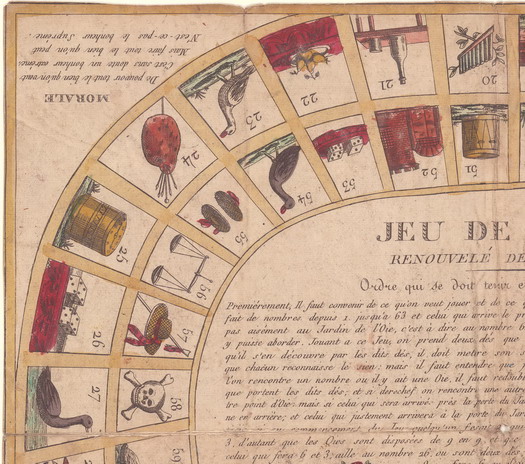 MORALE
De pouvoir tout le bien qu'on veut
C'est sans doute un bonheur extrême
Mais faire tout le bien qu'on peut
N'est-ce-pas le bonheur Suprême
20
21
22
23
24
25
26
27
51
52
53
54
55
56
57
58
59
JEU DE
RENOUVELÉ DE
Ordre qui se doit tenir e
Premièrement, Il faut convenir de ce qu'on veut jouer et de ce
faut de nombres depuis 1. jusqu'a 63 et celui qui arrive le pr
pas aisément au Jardin de l'Oie, c'est à dire au nombre
y puisse aborder. Jouant a ce Jeu, on prend deux dés que
qu'il s'en découvre par les dits dés, il doit mettre son
que chacun reconnaisse le sien; mais il faut entendre que
l'on rencontre un nombre ou il y ait une Oie, il faut redoubl
que portent les dits dés; et si derechef on rencontre une autr
tre point d'Oie: mais si celui qui sera arrivé près la porte du Ja
ne en arrière; et celui qui justement arrivera à la porte du Jar
au commencement du Jeu quelqu'un
3. d'autant que les Oies sont disposées de 9 en 9. et q
celui qui fera 6 et 3; aille au nombre 26. ou sont deux dés